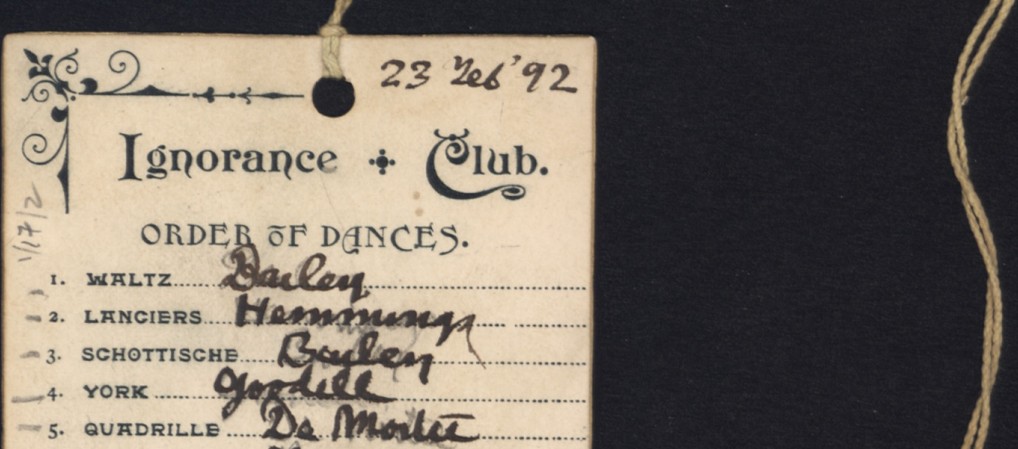 23 Feb '92
Ignorance Club.
ORDER OF DANCES.
1/17/2
1. WALTZ
2. LANCIERS Hemmings
3. SCHOTTISCHE Bayley
4. YORK Goodell
5. QUADRILLE De